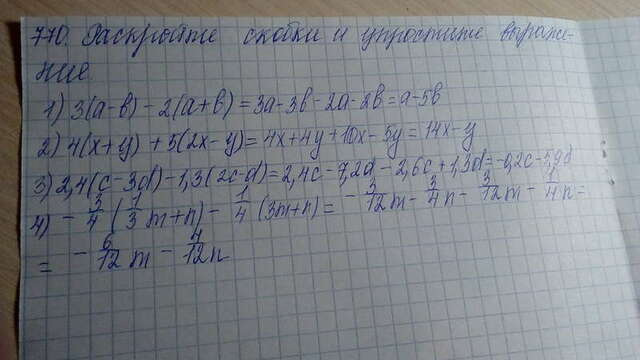 740. Раскройте скобки и упростите выраже-
ние
1) 3(a-b) - 2(a+b) = 3a-3b-2a-2b = a-5b
2) 4(x+y) + 5(2x-y) = 4x+4y+10x-5y = 14x-y
3) 2,4(c-3d)-1,3(2c-d)=2,4c-7,2d-2,6c+1,3d=-0,2c-5,9d
4) - 3/4 (1/3 m+n) - 1/4 (3m+n) = - 3/12 m - 3/4 n - 3/12 m - 1/4 n =
= - 6/12 m - 4/12 n